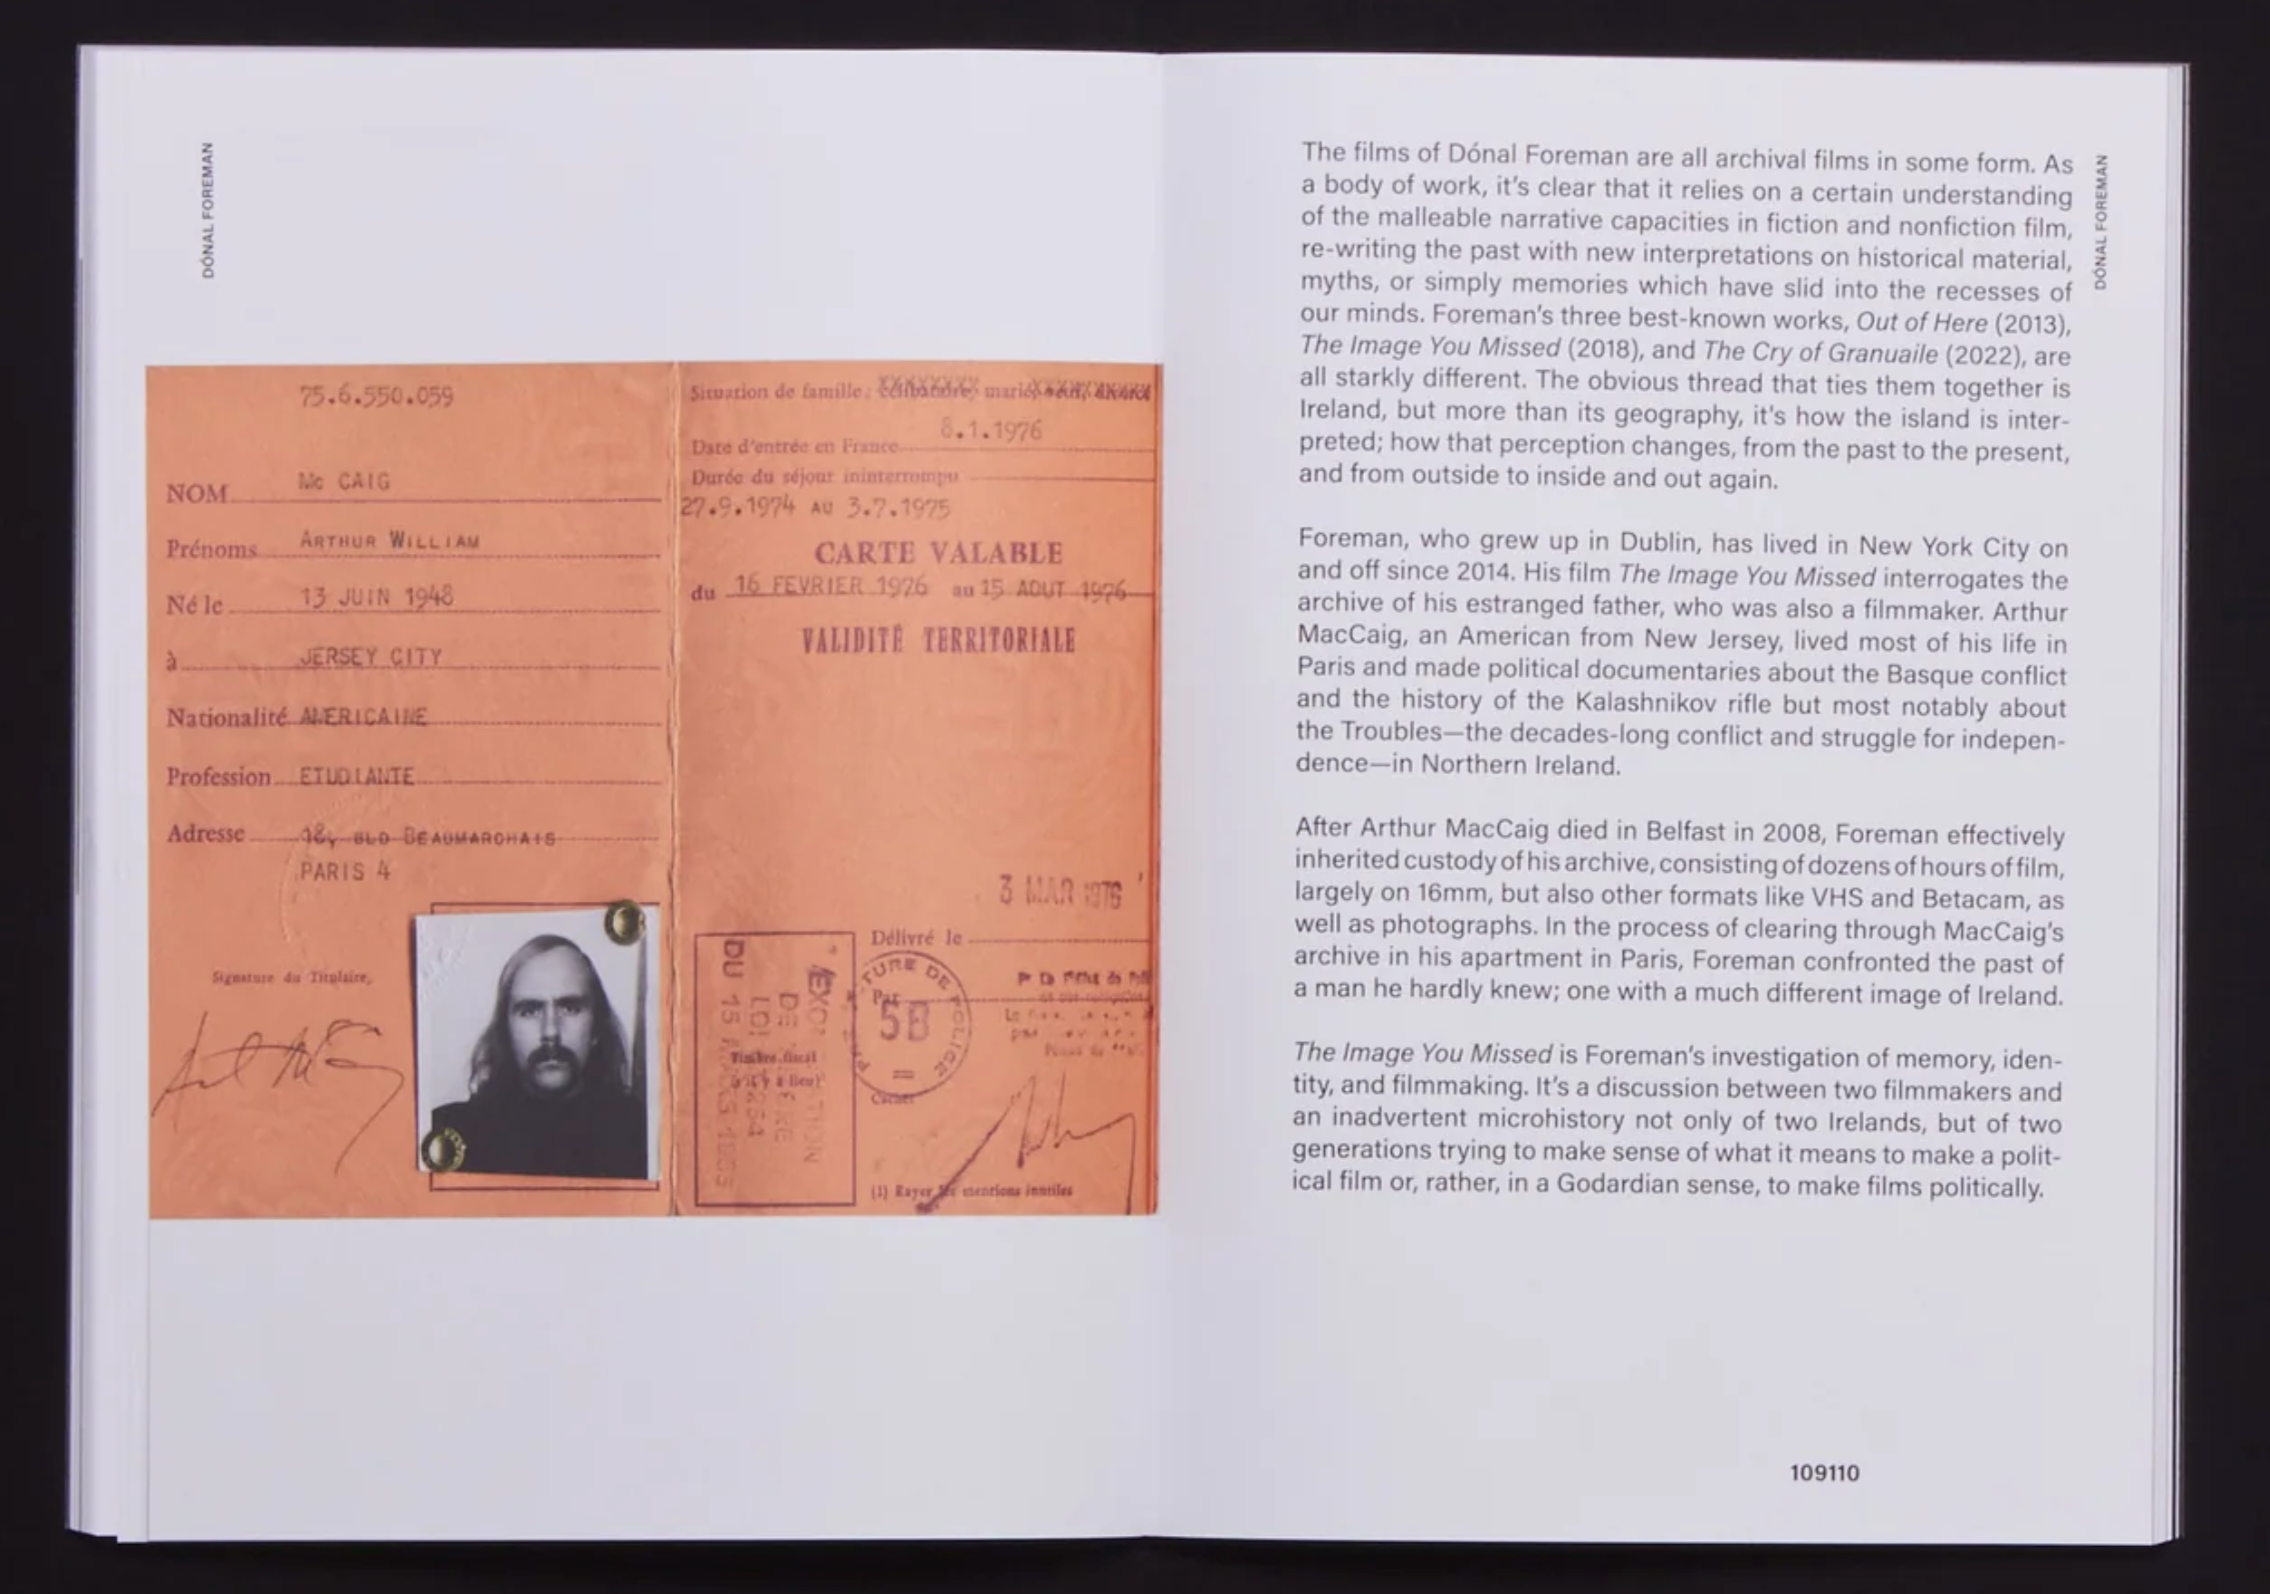 DÓNAL FOREMAN
75.6.550.059
NOM Mc CAIG
Prénoms ARTHUR WILLIAM
Né le 13 JUIN 1948
à JERSEY CITY
Nationalité AMERICAINE
Profession ETUDIANTE
Adresse 18, BLD BEAUMARCHAIS
PARIS 4
Signature du Titulaire,
Situation de famille: célibataire, marié
Date d'entrée en France 8.1.1976
Durée du séjour ininterrompu
27.9.1974 AU 3.7.1975
CARTE VALABLE
du 16 FEVRIER 1976 au 15 AOUT 1976
VALIDITÉ TERRITORIALE
3 MAR 1976
Délivré le
Par
TURE DE POLICE
5B
Cachet
DU 15
Timbre fiscal
(s'il y a lieu)
(1) Rayer les mentions inutiles
The films of Dónal Foreman are all archival films in some form. As
a body of work, it's clear that it relies on a certain understanding
of the malleable narrative capacities in fiction and nonfiction film,
re-writing the past with new interpretations on historical material,
myths, or simply memories which have slid into the recesses of
our minds. Foreman's three best-known works, Out of Here (2013),
The Image You Missed (2018), and The Cry of Granuaile (2022), are
all starkly different. The obvious thread that ties them together is
Ireland, but more than its geography, it's how the island is inter-
preted; how that perception changes, from the past to the present,
and from outside to inside and out again.
Foreman, who grew up in Dublin, has lived in New York City on
and off since 2014. His film The Image You Missed interrogates the
archive of his estranged father, who was also a filmmaker. Arthur
MacCaig, an American from New Jersey, lived most of his life in
Paris and made political documentaries about the Basque conflict
and the history of the Kalashnikov rifle but most notably about
the Troubles—the decades-long conflict and struggle for indepen-
dence—in Northern Ireland.
After Arthur MacCaig died in Belfast in 2008, Foreman effectively
inherited custody of his archive, consisting of dozens of hours of film,
largely on 16mm, but also other formats like VHS and Betacam, as
well as photographs. In the process of clearing through MacCaig's
archive in his apartment in Paris, Foreman confronted the past of
a man he hardly knew; one with a much different image of Ireland.
The Image You Missed is Foreman's investigation of memory, iden-
tity, and filmmaking. It's a discussion between two filmmakers and
an inadvertent microhistory not only of two Irelands, but of two
generations trying to make sense of what it means to make a polit-
ical film or, rather, in a Godardian sense, to make films politically.
DÓNAL FOREMAN
109110